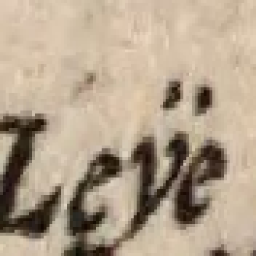 Leÿe